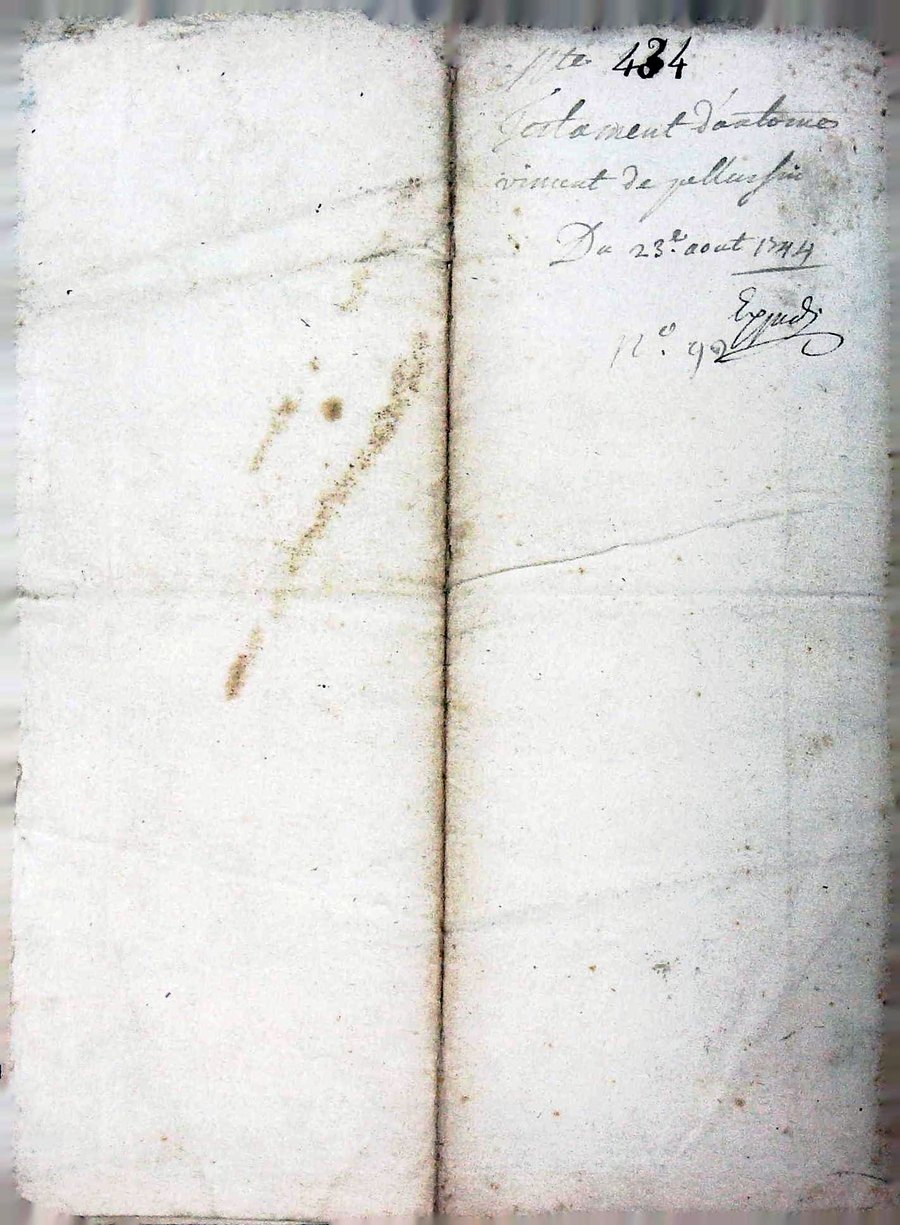 434
Testament d'antoine
vincent de pellussin
Du 23.e aout 1744
Expedi
N.o 92